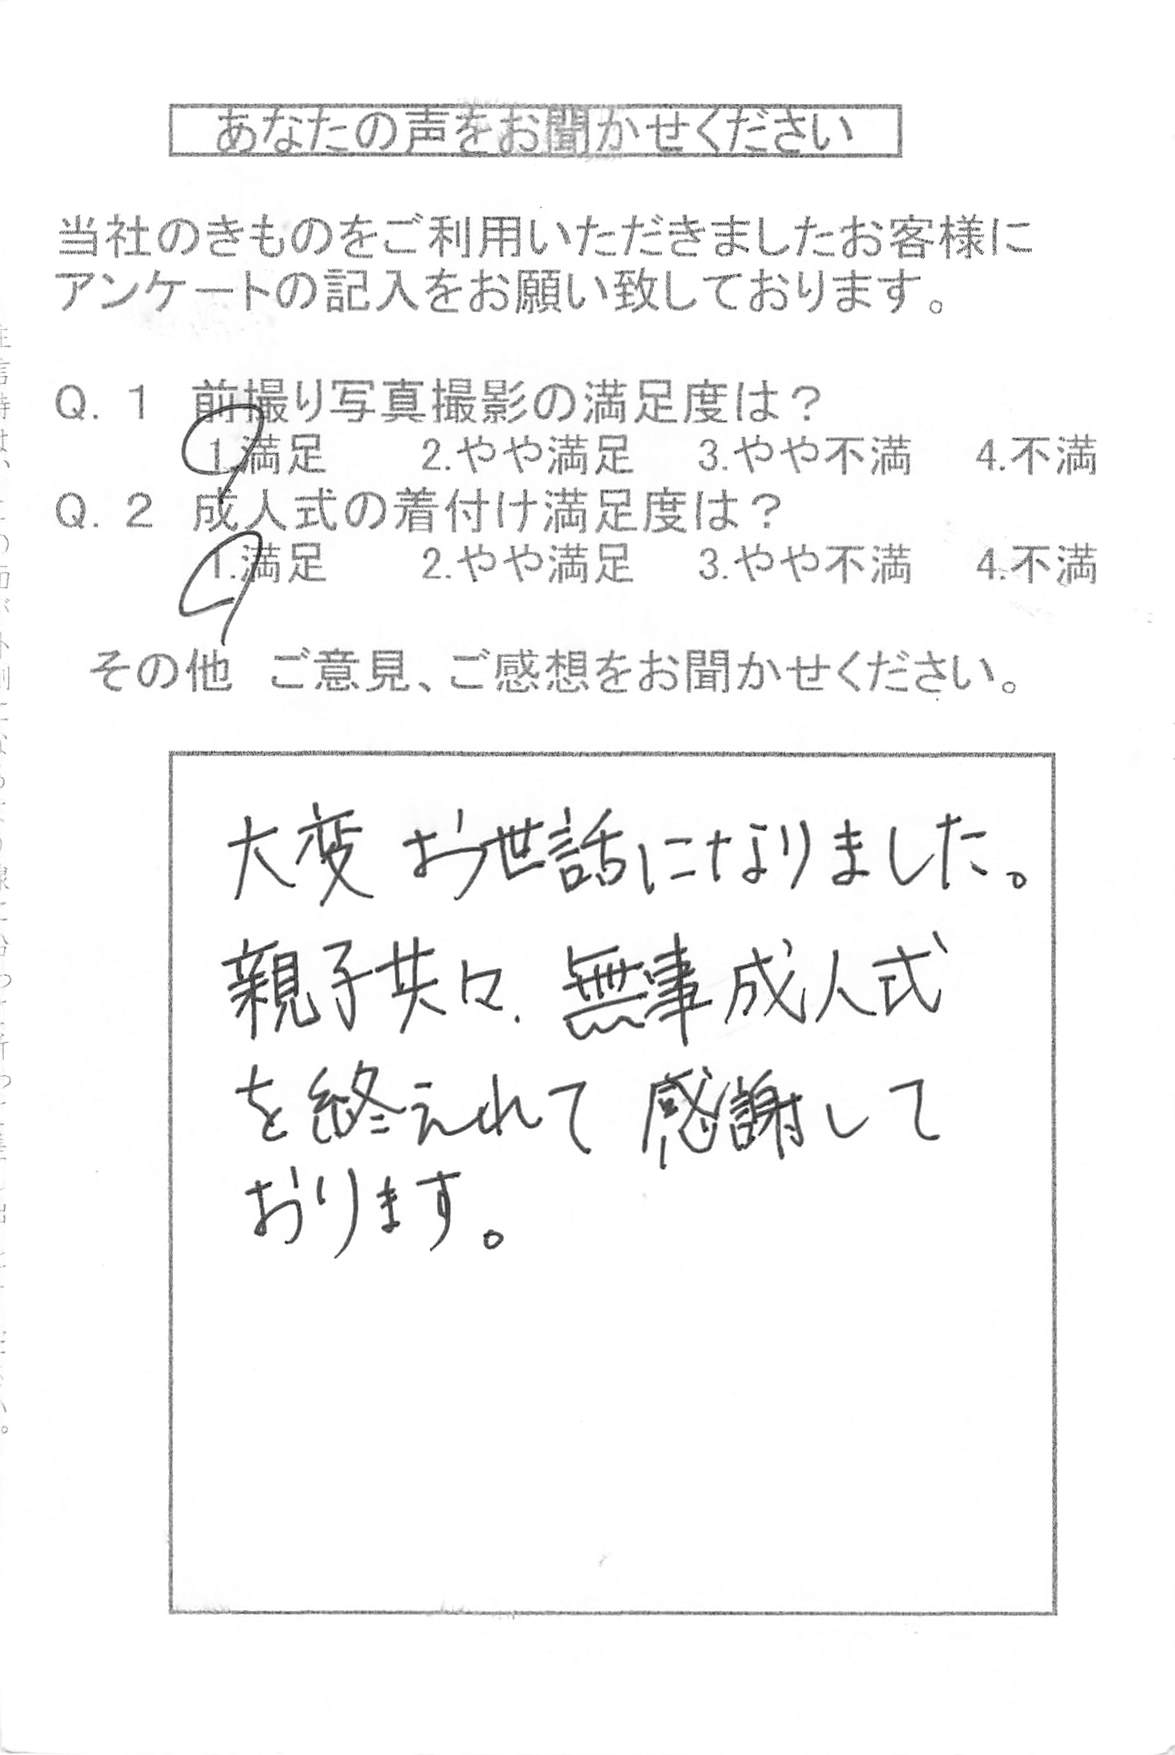 あなたの声をお聞かせください
当社のきものをご利用いただきましたお客様に
アンケートの記入をお願い致しております。
Q.1 前撮り写真撮影の満足度は?
1.満足 2.やや満足 3.やや不満 4.不満
Q.2 成人式の着付け満足度は?
1.満足 2.やや満足 3.やや不満 4.不満
その他 ご意見、ご感想をお聞かせください。
大変 お世話になりました。
親子共々、無事成人式
を終えれて 感謝して
おります。